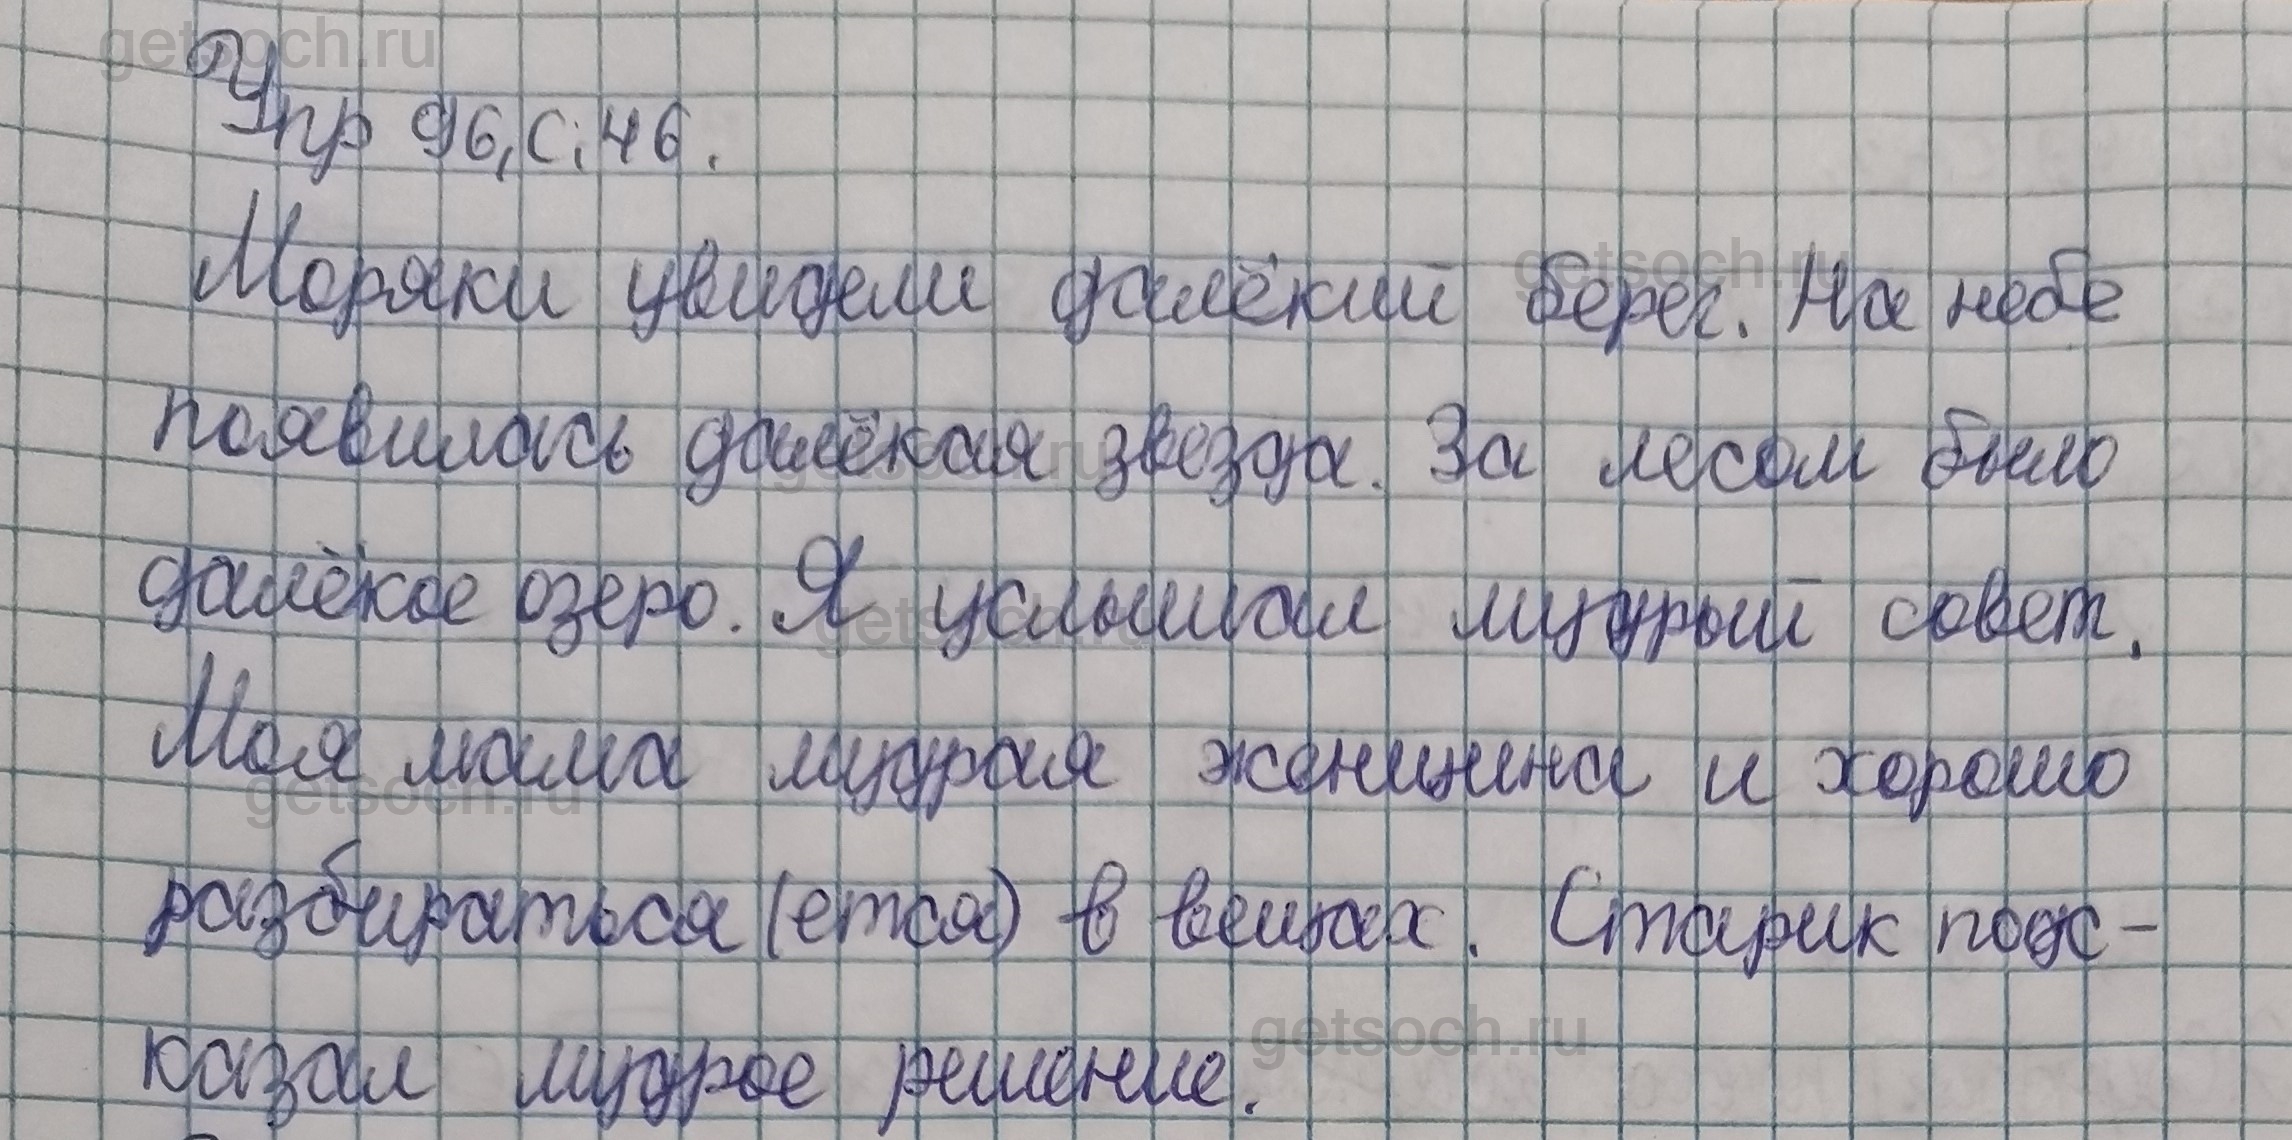 getsoch.ru
Упр 96, с. 46.
getsoch.ru
Моряки увидели далёкий берег. На небе
появилась далёкая звезда. За лесом было
getsoch.ru
далёкое озеро. Я услышал мудрый совет.
getsoch.ru
Моя мама мудрая женщина и хорошо
getsoch.ru
разбираться (ется) в вещах. Старик подс-
getsoch.ru
казал мудрое решение.